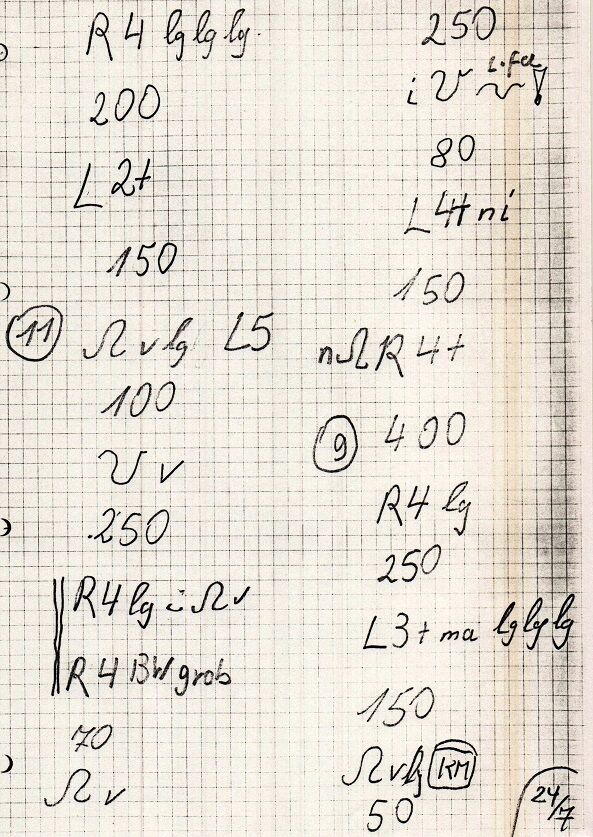 R 4 lg lg lg.
200
L 2+
150
11 Ω v lg L5
100
v
250
R4 lg ü Ω v
R 4 BW grob
70
Ω v
250
i L. fa
80
L 4+ ni
150
n Ω R 4+
9 400
R4 lg
250
L3+ ma lg lg lg
150
Ω v lg KM
50
24/7